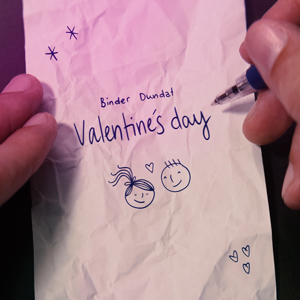 Binder Dundat
Valentine's day